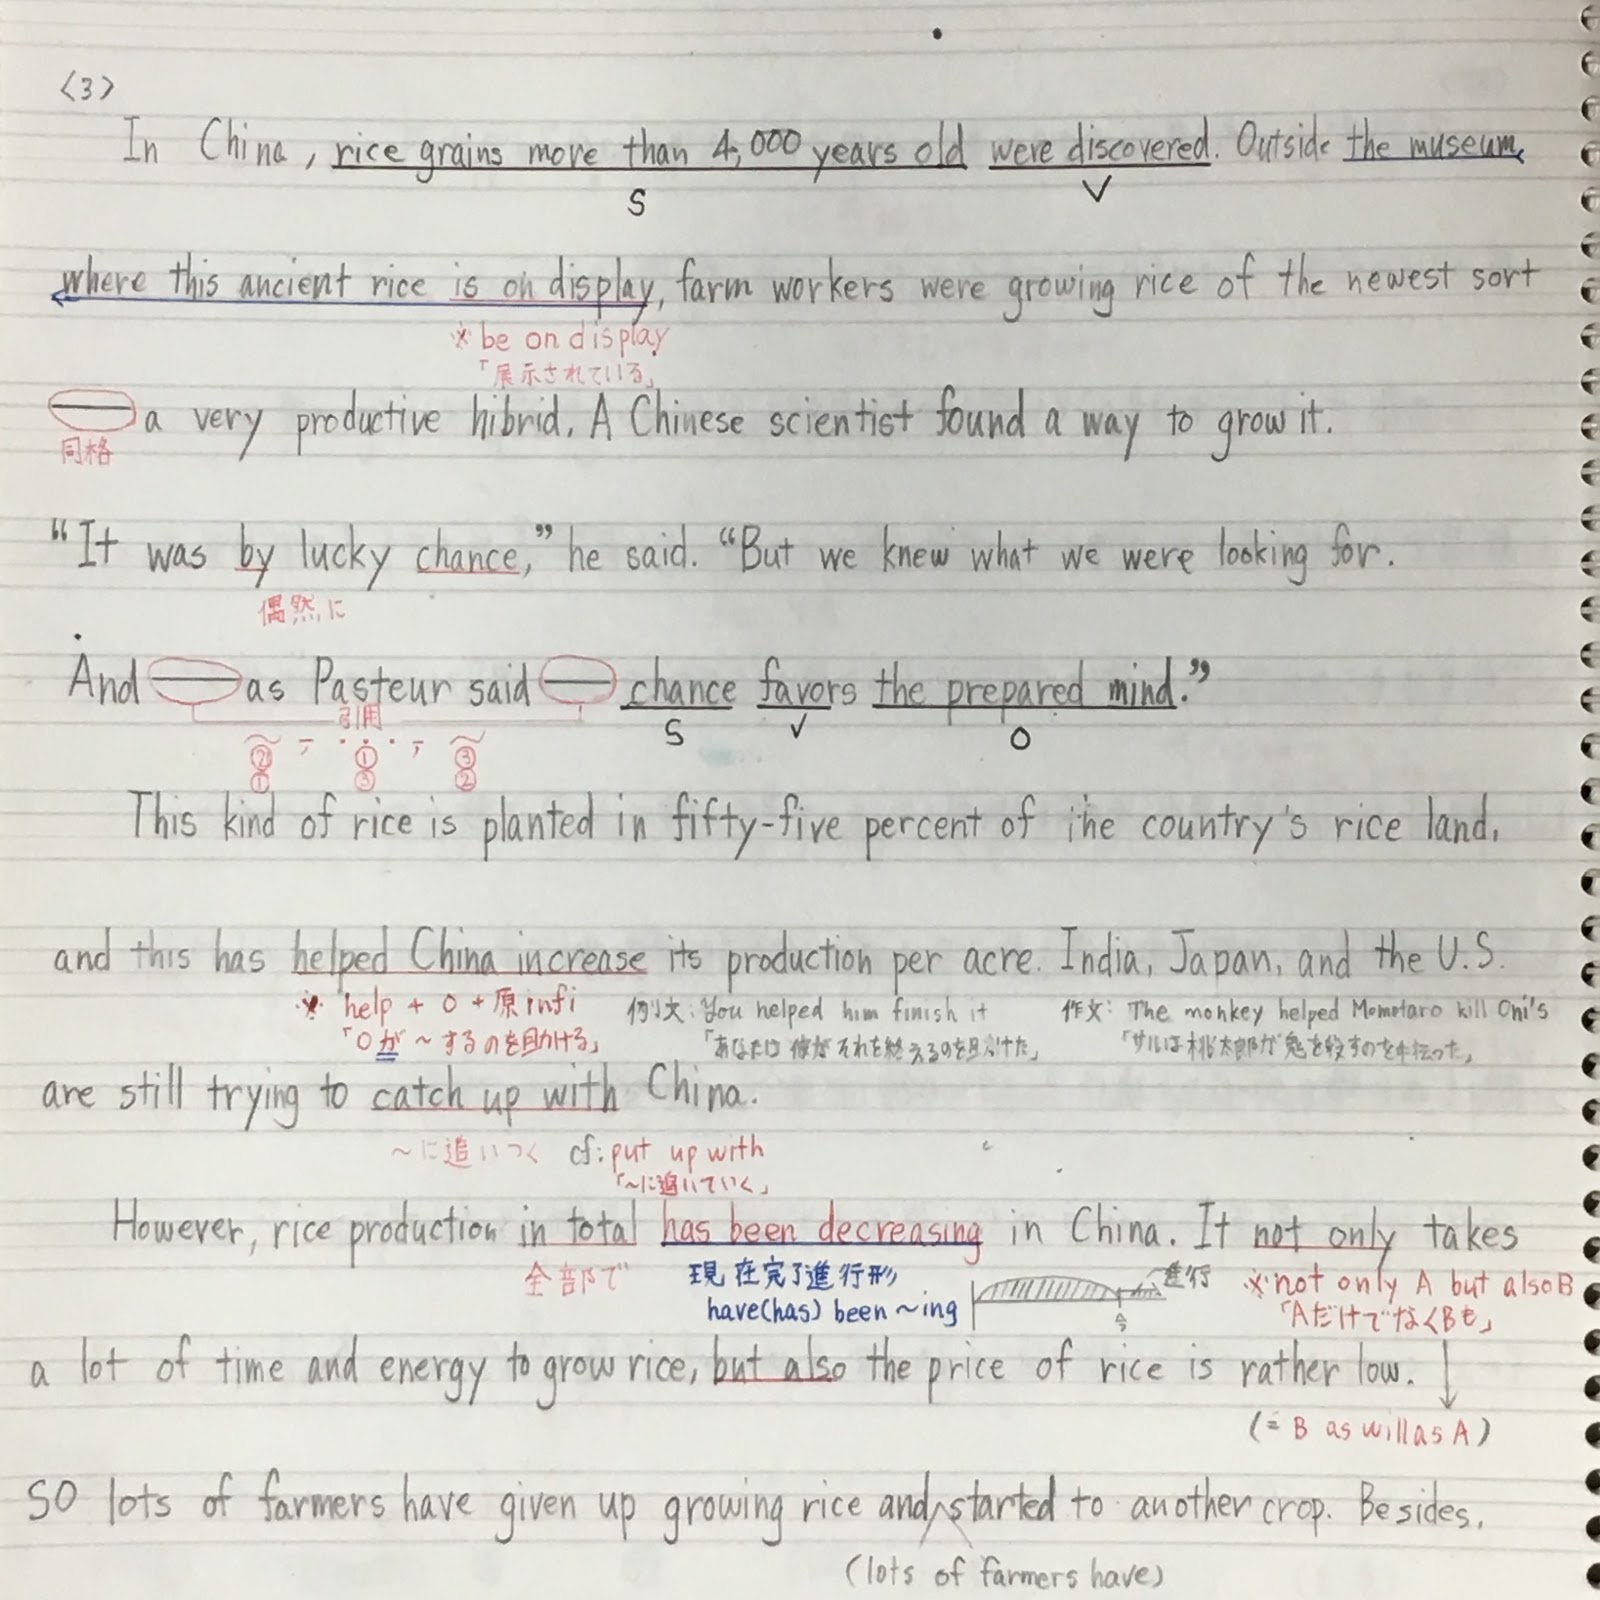 <3>
In China, rice grains more than 4,000 years old were discovered. Outside the museum,
S V
where this ancient rice is on display, farm workers were growing rice of the newest sort
※be on display
「展示されている」
— a very productive hibrid. A Chinese scientist found a way to grow it.
同格
“It was by lucky chance,” he said. “But we knew what we were looking for.
偶然に
And — as Pasteur said — chance favors the prepared mind.”
引用 S V O
② ① ③
① ③ ②
This kind of rice is planted in fifty-five percent of the country's rice land,
and this has helped China increase its production per acre. India, Japan, and the U.S.
※ help + O + 原infi 例文: You helped him finish it 作文: The monkey helped Momotaro kill Oni's
「Oが〜するのを助ける」 「あなたは彼がそれを終えるのを助けた」 「サルは桃太郎が鬼を殺すのを手伝った」
are still trying to catch up with China.
〜に追いつく cf: put up with
「〜に追いていく」
However, rice production in total has been decreasing in China. It not only takes
全部で 現在完了進行形 進行 ※not only A but also B
have(has) been ~ing 今 「AだけでなくBも」
a lot of time and energy to grow rice, but also the price of rice is rather low.
(= B as will as A)
SO lots of farmers have given up growing rice and started to another crop. Besides,
(lots of farmers have)